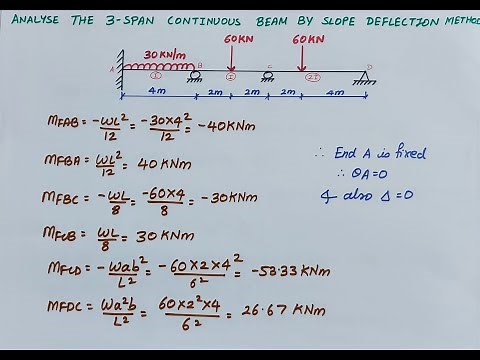 ANALYSE THE 3-SPAN CONTINUOUS BEAM BY SLOPE DEFLECTION METHOD
60KN 60KN
30KN/m
A B C D
(I) (I) (2I)
4m 2m 2m 2m 4m
MFAB = -ωL²/12 = -30×4²/12 = -40KNm
MFBA = ωL²/12 = 40 KNm
MFBC = -WL/8 = -60×4/8 = -30KNm
MFCB = WL/8 = 30 KNm
MFCD = -Wab²/L² = -60×2×4²/6² = -53.33 KNm
MFDC = Wa²b/L² = 60×2²×4/6² = 26.67 KNm
∴ End A is fixed
∴ θA=0
& also Δ=0